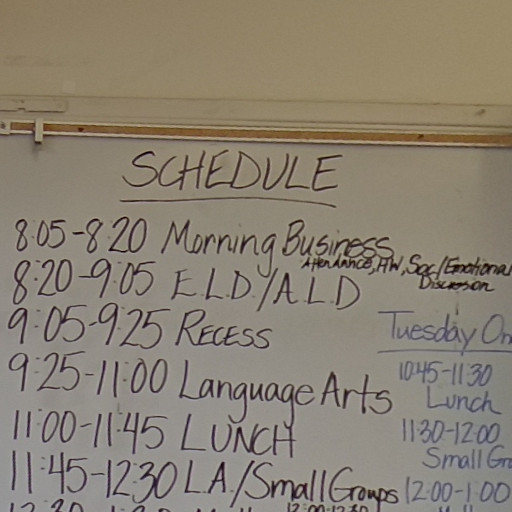 SCHEDULE
8:05-8:20 Morning Business
Attendance, HW, Soc/Emotional
Discussion
8:20-9:05 E.L.D./A.L.D
9:05-9:25 RECESS
9:25-11:00 Language Arts
11:00-11:45 LUNCH
11:45-12:30 L.A./Small Groups
Tuesday On
10:45-11:30
Lunch
11:30-12:00
Small Gro
12:00-1:00